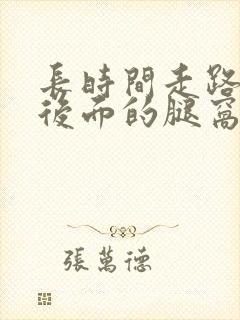 長時間走路
後面的腿窩
張萬德